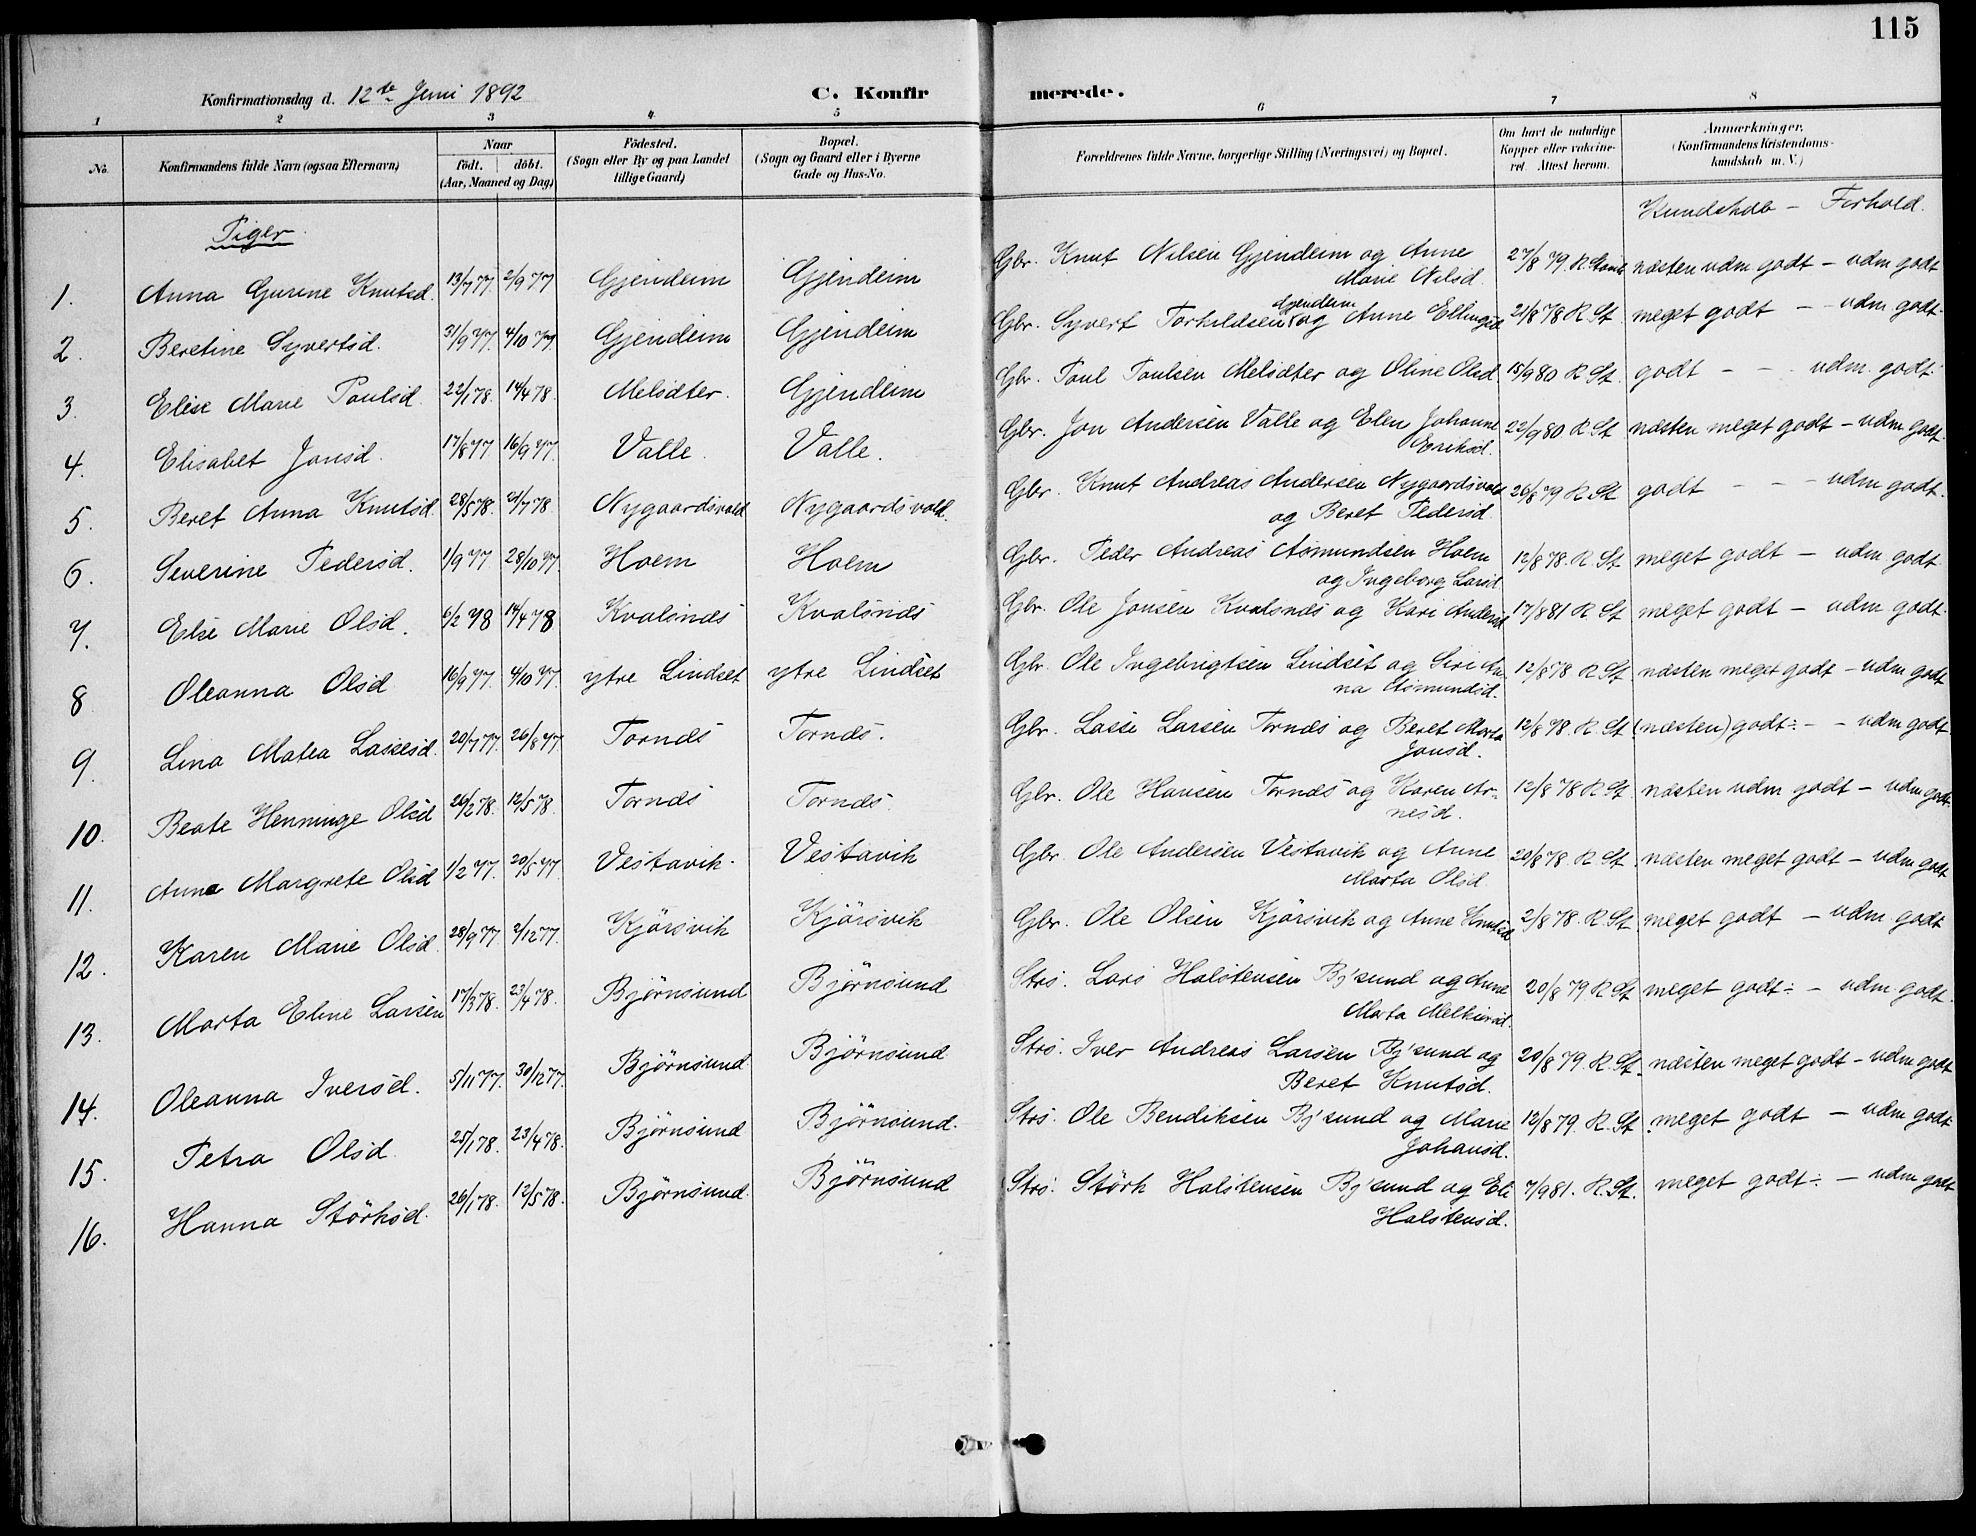 115
Konfirmationsdag d. 12te Juni 1892 C. Konfirmerede.
1 2 3 4 5 6 7 8
No. Konfirmandens fulde Navn (ogsaa Efternavn) Naar født. døbt. (Aar, Maaned og Dag) Fødested. (Sogn eller By og paa Landet tillige Gaard) Bopæl. (Sogn og Gaard eller i Byerne Gade og Hus-No. Forældrenes fulde Navne, borgerlige Stilling (Næringsvei) og Bopæl. Om havt de naturlige Kopper eller vaccineret. Attest herom. Anmærkninger. (Konfirmandens Kristendomskundskab m. V.)
Kundskab - Forhold.
Piger
1. Anna Gurine Knutsd. 13/7 77. 2/9 77 Gjendeim Gjendeim Gbr. Knut Nilsen Gjendeim og Anne Marie Nilsd. 27/8 79. R. Stand næsten udm godt - udm godt
2. Beretine Syvertsd. 31/9 77. 4/10 77. Gjendeim Gjendeim Gbr. Syvert Torkildsen Gjendeim og Anne Ellingsd 21/8 78 R St. meget godt - udm godt.
3. Elise Marie Paulsd. 22/1 78. 14/4 78. Melsæter. Gjendeim Gbr. Paul Paulsen Melsæter og Oline Olsd 15/9 80 R St. godt - - udm. godt.
4. Elisabet Jonsd. 17/8 77 16/9 77. Valle. Valle. Gbr. Jon Andersen Valle og Elen Johanne Eriksd. 22/9 80 R St næsten meget godt - udm godt.
5. Beret Anna Knutsd. 28/5 78. 21/7 78 Nygaardsvold Nygaardsvold. Gbr. Knut Andreas Andersen Nygaardsvold og Beret Pedersd. 26/8 79 R St godt - - - udm godt.
6. Severine Pedersd. 1/9 77. 28/10 77. Hoem Hoem Gbr. Peder Andreas Asmundsen Hoem og Ingeborg Larsd 12/8 78. R. St meget godt - udm godt
7. Else Marie Olsd. 6/2 78 14/4 78 Kvalsnæs Kvalsnæs Gbr. Ole Jonsen Kvalsnæs og Kari Andersd 17/8 81 R St meget godt - udm godt.
8. Oleanna Olsd 16/9 77. 4/10 77. ytre Lindset ytre Lindset Gbr. Ole Ingebrigtsen Lindset og Siri Anna Asmundsd. 12/8 78 R St næsten meget godt - udm godt
9. Lina Matea Lassesd. 20/7 77. 26/8 77 Tornæs Tornæs. Gbr. Lasse Larsen Tornæs og Beret Marta Jonsd. 12/8 78. R. St (næsten) godt ÷ - - udm godt.
10. Beate Henninge Olsd 26/2 78. 12/5 78. Tornæs Tornæs. Gbr. Ole Hansen Tornæs og Karen Arnesd. 12/8 78 R St næsten udm godt - udm godt.
11. Anne Margrete Olsd 1/2 77. 20/5 77. Vestavik. Vestavik Gbr. Ole Andersen Vestavik og Anne Marta Olsd. 20/8 78 R St. næsten meget godt - udm godt
12. Karen Marie Olsd. 28/9 77. 2/12 77. Kjörsvik Kjörsvik Gbr. Ole Olsen Kjörsvik og Anne Knutsd 2/8 78. R. St. meget godt - udm. godt
13. Marta Eline Larsen 17/3 78. 23/4 78. Björnsund Björnsund Strs. Lars Halstensen Bj'sund og Anne Marta Melkiorsd. 20/8 79 R St. meget godt ÷ - udm godt.
14. Oleanna Iversd. 5/11 77. 30/12 77. Björnsund Björnsund Strs. Iver Andreas Larsen Bj'sund og Beret Knutsd. 20/8 79. R. St. næsten meget godt - udm godt
15. Petra Olsd. 25/1 78. 23/4 78. Björnsund Björnsund. Strs. Ole Bendiksen Bj'sund og Marie Johansd. 12/8 79. R. St. meget godt - udm godt.
16. Hanna Störksd. 26/1 78. 12/5 78. Björnsund. Björnsund Strs. Störk Halstensen Bj'sund og Eli Halstensd. 7/9 81. R. St. meget godt ÷ - udm godt